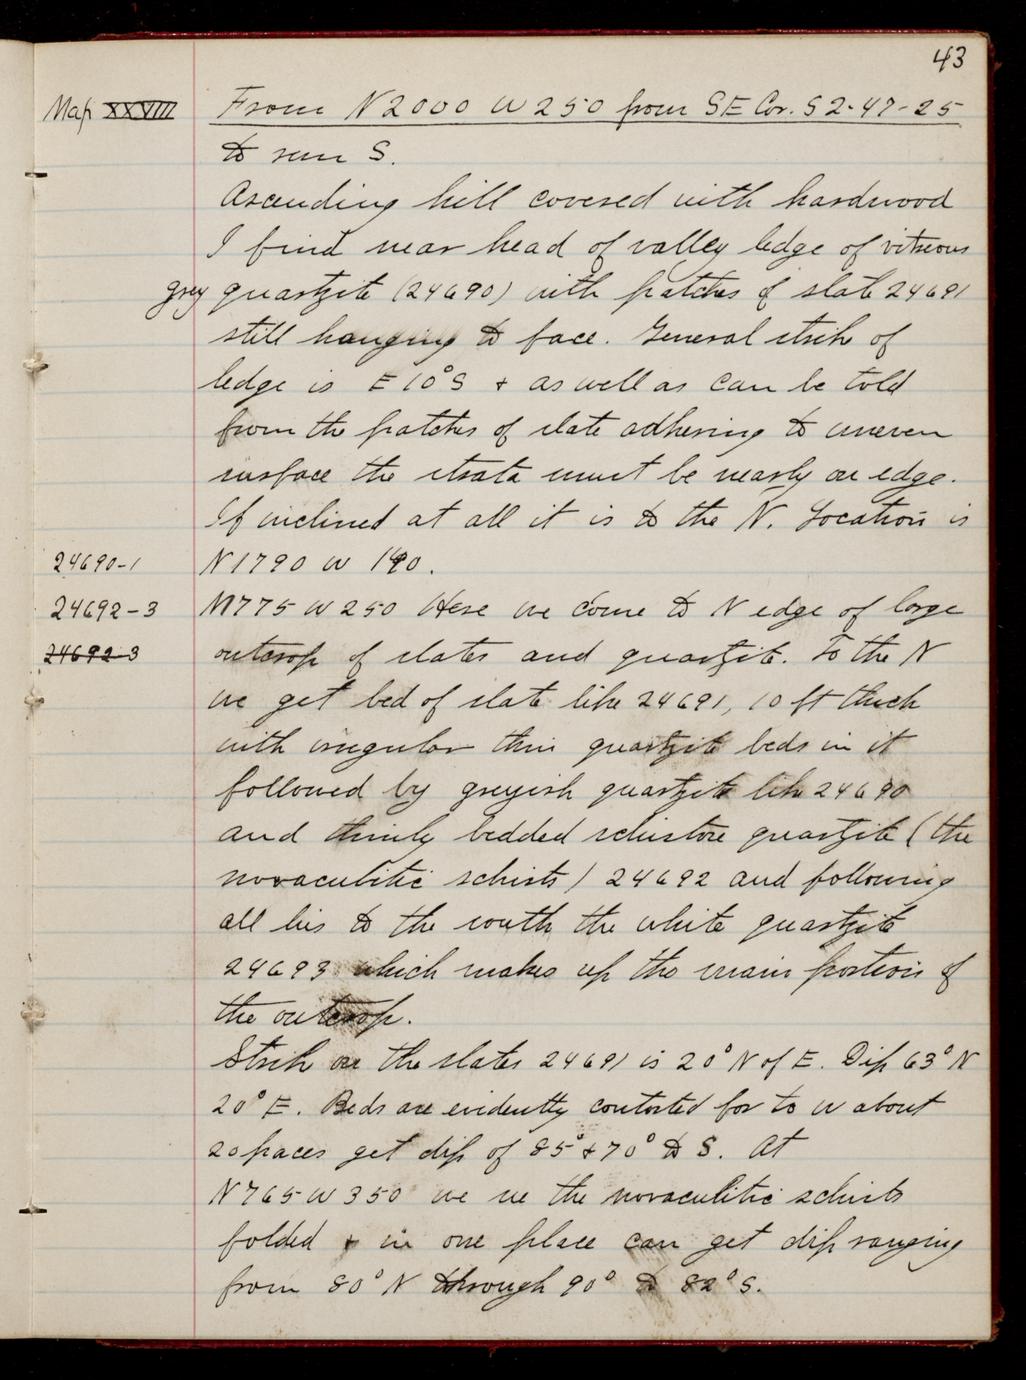 43
Map XXVIII From N2000 W250 from SE Cor. S2-47-25
to run S.
Ascending hill covered with hardwood
I find near head of valley ledge of vitreous
grey quartzite (24690) with patches of slate 24691
still hanging to face. General strik of
ledge is E10°S + as well as can be told
from the patches of slate adhering to uneven
surface the strata must be nearly on edge.
If inclined at all it is to the N. Location is
24690-1 N1790 W 190.
24692-3 N775 W250 Here we come to N edge of large
24692-3 outcrop of slates and quartzite. To the N
we get bed of slate like 24691, 10 ft thick
with irregular thin quartzite beds in it
followed by greyish quartzite like 24690
and thinly bedded schistose quartzite (the
novaculitic schists) 24692 and following
all his to the south the white quartzite
24693 which makes up the main portion of
the outcrop.
Strik on the slates 24691 is 20° N of E. Dip 63° N
20° E. Beds are evidently contorted for to W about
20 paces get dip of 85° + 70° to S. At
N765 W350 we see the novaculitic schists
folded + in one place can get dip ranging
from 80° N through 90° to 82° S.